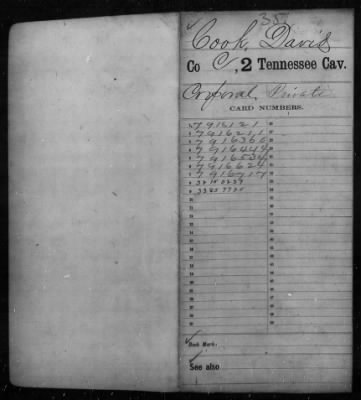 35
Cook, Davis
Co C, 2 Tennessee Cav.
Corporal Private
CARD NUMBERS.
7916121
7916211
7916360
7916444
7916534
7916624
7916717
Book Mark:
See also